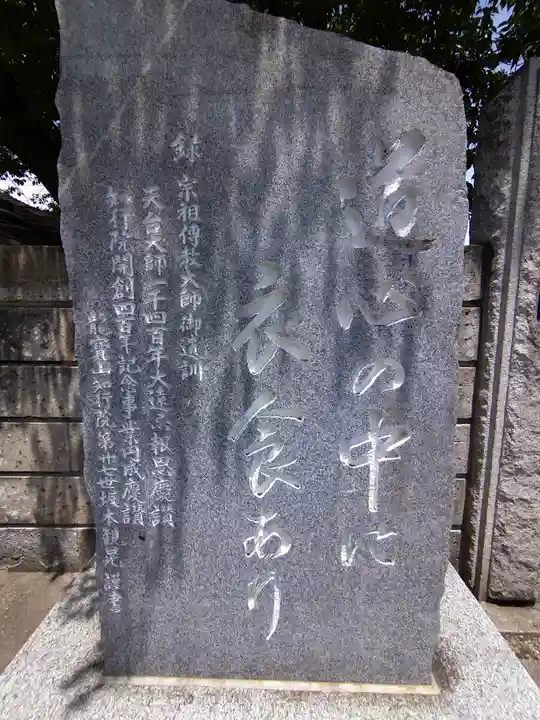 道心の中に
衣食あり
録 宗祖傳教大師御遺訓
天台大師一千四百年大遠忌報恩慶讃
知行院開創四百年記念事業円成慶讃
龍寳山知行院第廿世坂本観晃 謹書